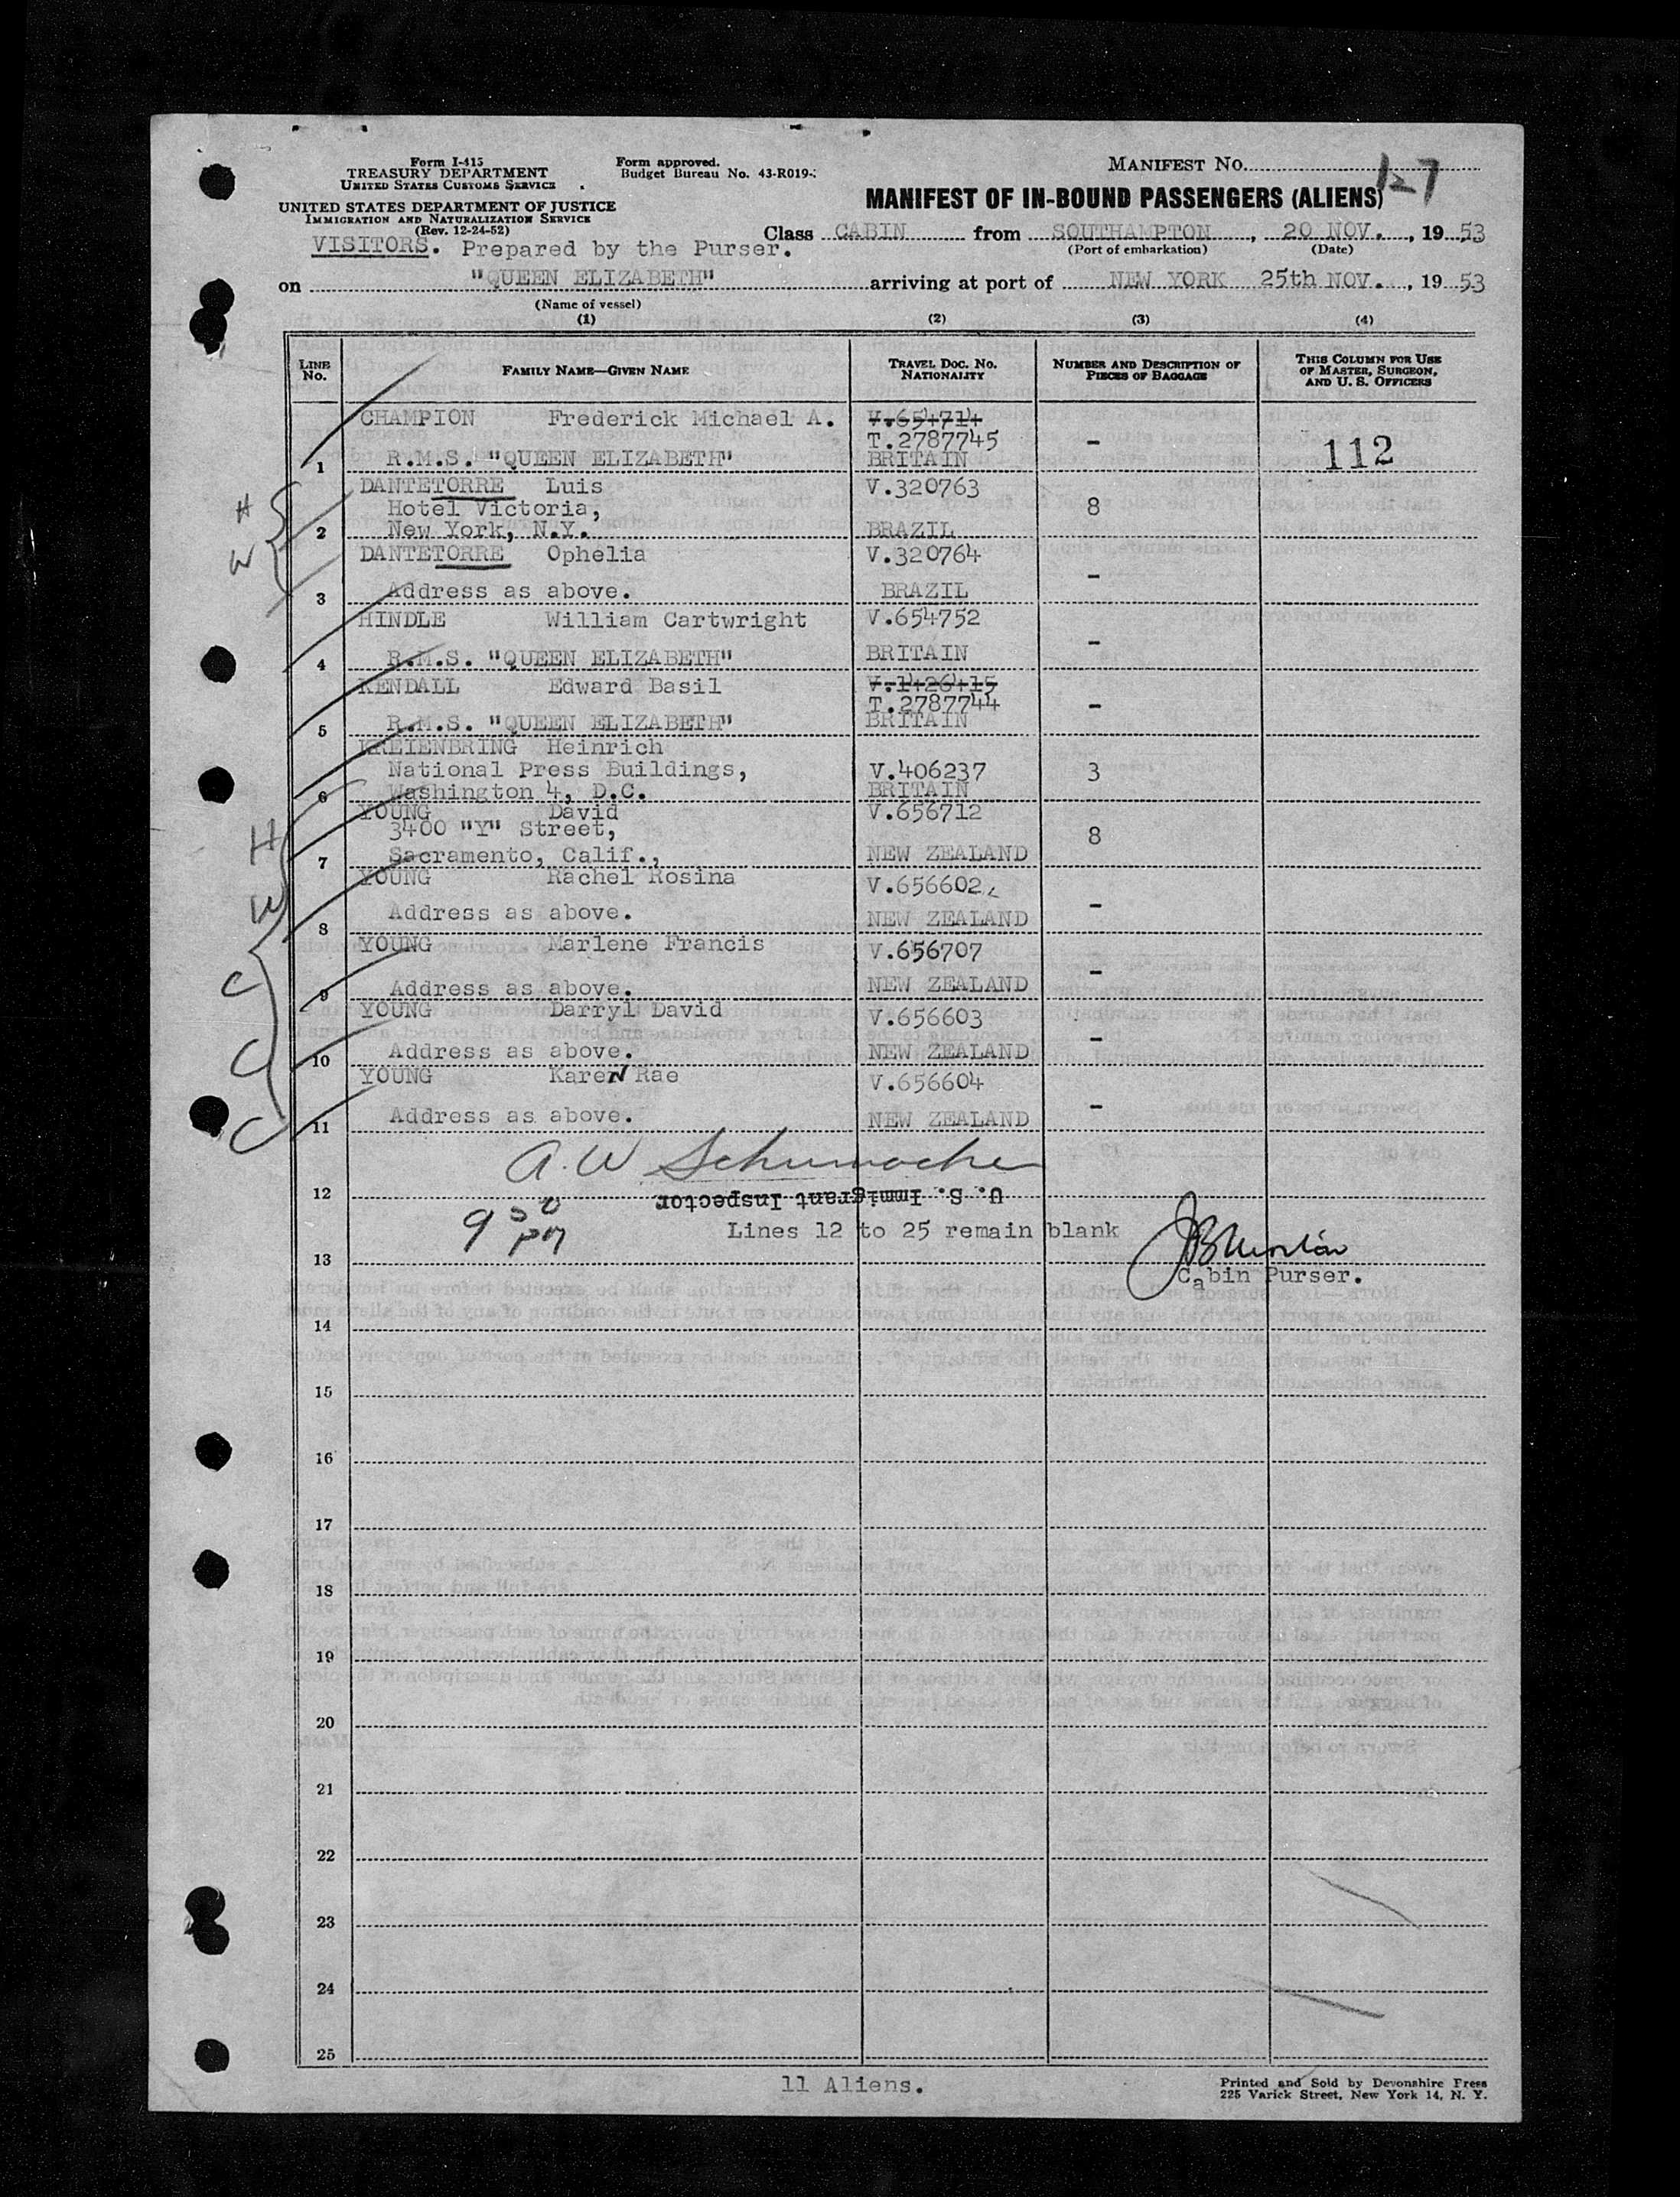 Form I-415
TREASURY DEPARTMENT
UNITED STATES CUSTOMS SERVICE
UNITED STATES DEPARTMENT OF JUSTICE
IMMIGRATION AND NATURALIZATION SERVICE
(Rev. 12-24-52)
Form approved.
Budget Bureau No. 43-R019-
MANIFEST NO. 127
MANIFEST OF IN-BOUND PASSENGERS (ALIENS)
VISITORS. Prepared by the Purser.
Class CABIN from SOUTHAMPTON, 20 NOV., 1953
(Port of embarkation) (Date)
on "QUEEN ELIZABETH" arriving at port of NEW YORK 25th NOV., 1953
(Name of vessel)
(1) (2) (3) (4)
LINE NO. FAMILY NAME—GIVEN NAME TRAVEL DOC. NO. NATIONALITY NUMBER AND DESCRIPTION OF PIECES OF BAGGAGE THIS COLUMN FOR USE OF MASTER, SURGEON, AND U. S. OFFICERS
CHAMPION Frederick Michael A. V.654714
T.2787745 - 112
1 R.M.S. "QUEEN ELIZABETH" BRITAIN
DANTETORRE Luis V.320763
H Hotel Victoria, 8
2 New York, N.Y. BRAZIL
W DANTETORRE Ophelia V.320764
-
3 Address as above. BRAZIL
HINDLE William Cartwright V.654752
-
4 R.M.S. "QUEEN ELIZABETH" BRITAIN
KENDALL Edward Basil V.1426415
T.2787744 -
5 R.M.S. "QUEEN ELIZABETH" BRITAIN
KREIENBRING Heinrich
National Press Buildings, V.406237 3
6 Washington 4, D.C. BRITAIN
YOUNG David V.656712
H 3400 "Y" Street, 8
7 Sacramento, Calif., NEW ZEALAND
YOUNG Rachel Rosina V.656602
W -
8 Address as above. NEW ZEALAND
YOUNG Marlene Francis V.656707
C -
9 Address as above. NEW ZEALAND
YOUNG Darryl David V.656603
C -
10 Address as above. NEW ZEALAND
YOUNG Karen Rae V.656604
C -
11 Address as above. NEW ZEALAND
A. W Schumacher
12 U. S. Immigrant Inspector
9 50 PM
Lines 12 to 25 remain blank
13
Cabin Purser.
14
15
16
17
18
19
20
21
22
23
24
25
11 Aliens.
Printed and Sold by Devonshire Press
225 Varick Street, New York 14, N. Y.